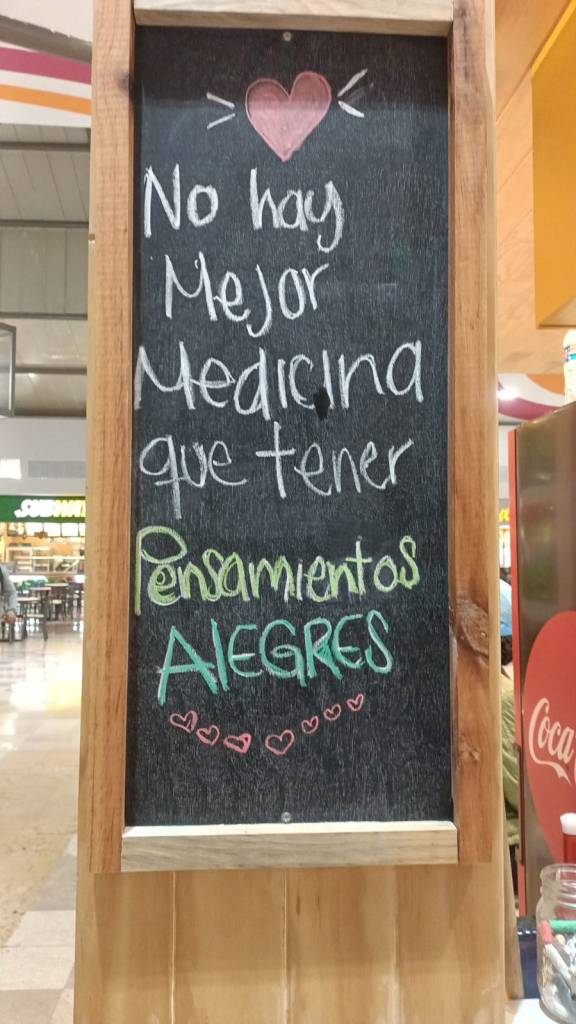 No hay
Mejor
Medicina
que tener
Pensamientos
AlEGRES
SUBWAY
Coca